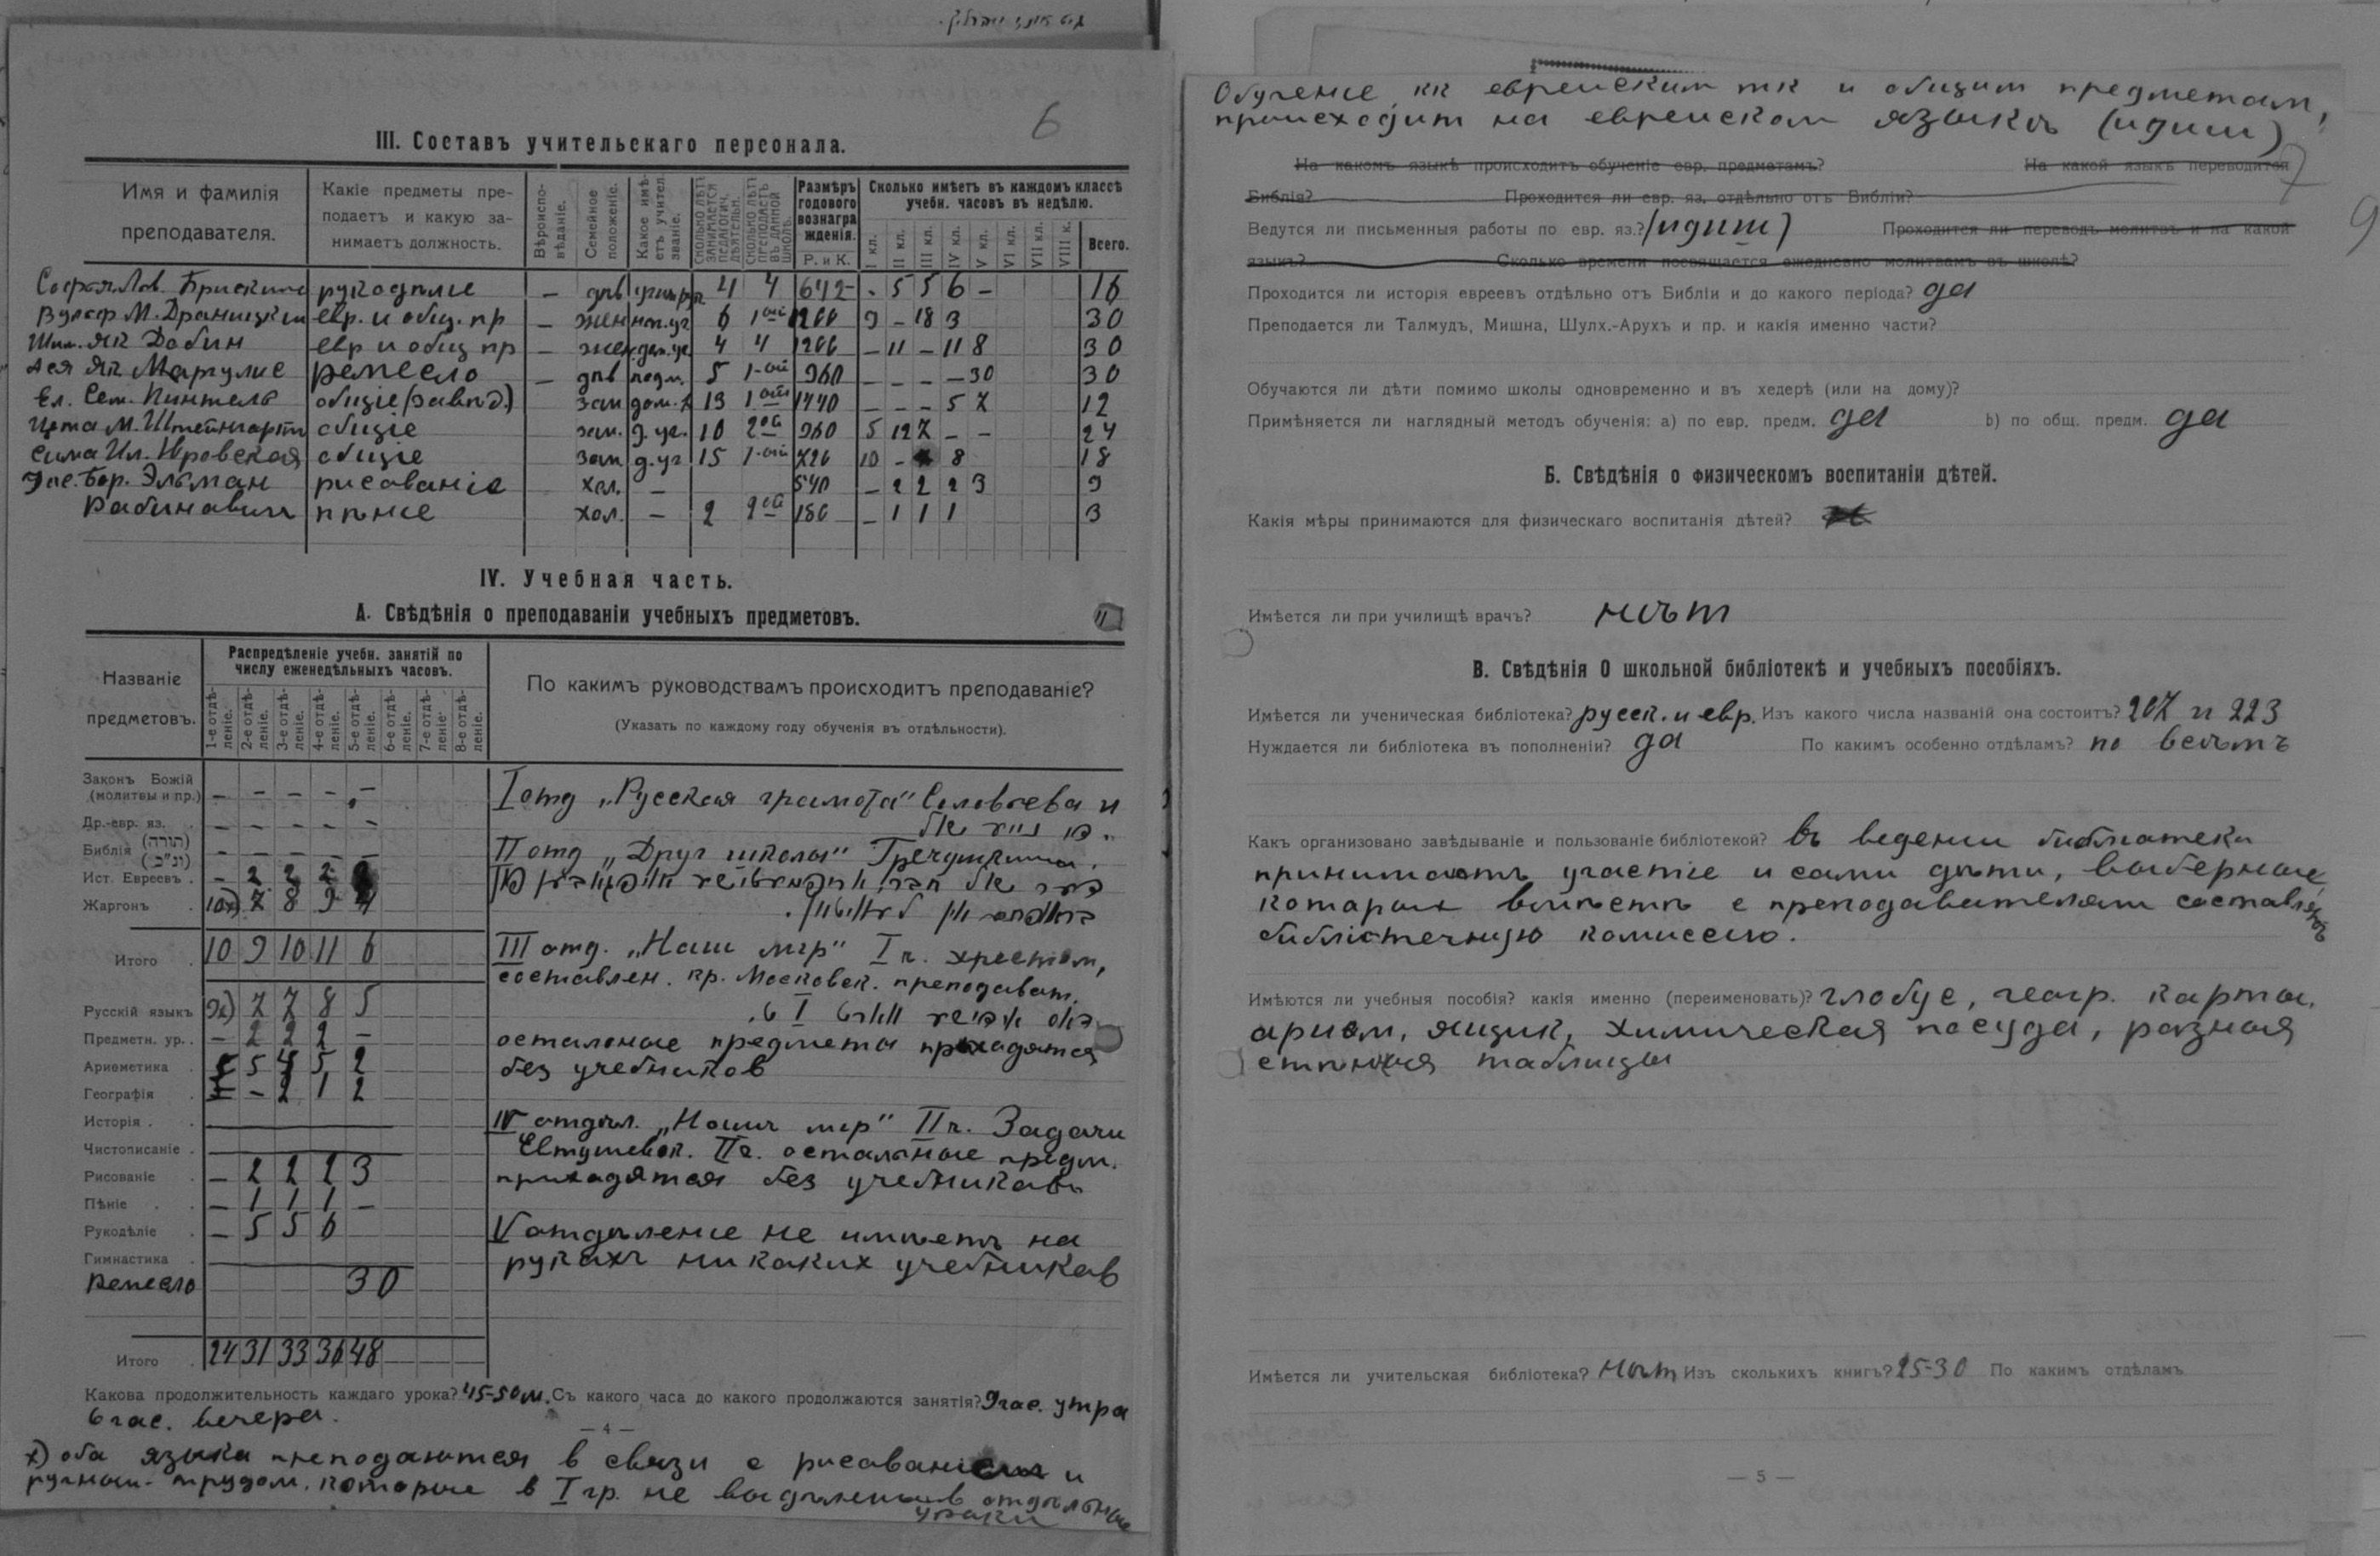 6
III. Составъ учительскаго персонала.
Имя и фамилія преподавателя.
Какіе предметы преподаетъ и какую занимаетъ должность.
Вѣроисповѣданіе.
Семейное положеніе.
Какое имѣетъ учител. званіе.
Сколько лѣтъ занимается педагогич. дѣятельн.
Сколько лѣтъ преподаетъ въ данной школѣ.
Размѣръ годового вознагражденія. Р. и К.
Сколько имѣетъ въ каждомъ классѣ учебн. часовъ въ недѣлю.
I кл. II кл. III кл. IV кл. V кл. VI кл. VII кл. VIII к. Всего.
рукоделие — 4 4 642 - 5 5 6 –
М. Драницкий евр. и общ. пр — жен 6 1ый 1200 9 – 18 3 30
Як Добин евр и общ пр — жен 4 4 1200 – 11 – 11 8 30
Ася Як Маргулис ремесло — 5 1-ый 960 – – – – 30 30
Ел. Сем. 13 1ый 1440 – – – 5 7 12
М. Штейнгарт общіе зам. 10 2ой 960 5 12 7 – – 24
Сима общіе зам д. уч 15 1-ый 720 10 – 8 18
Бор. Эльман рисованіе хол. – 540 – 2 2 2 3 9
Рабинович пѣние хол. – 2 2ой 180 – 1 1 1 3
IV. Учебная часть.
А. Свѣдѣнія о преподаваніи учебныхъ предметовъ.
Названіе предметовъ.
Распредѣленіе учебн. занятій по числу еженедѣльныхъ часовъ.
1-е отдѣленіе. 2-е отдѣленіе. 3-е отдѣленіе. 4-е отдѣленіе. 5-е отдѣленіе. 6-е отдѣленіе. 7-е отдѣленіе. 8-е отдѣленіе.
По какимъ руководствамъ происходитъ преподаваніе?
(Указать по каждому году обученія въ отдѣльности).
Законъ Божій (молитвы и пр.) – – – – –
Др.-евр. яз. – – – – –
Библія (תורה) (נ״כ) – – – – –
Ист. Евреевъ – 2 2 2
Жаргонъ 10х) 7 8 9 4
Итого 10 9 10 11 6
Русскій языкъ 9х) 7 7 8 5
Предметн. ур. – 2 2 2 –
Ариѳметика 5 4 5 2
Географія – 2 1 2
Исторія
Чистописаніе
Рисованіе – 2 2 2 3
Пѣніе – 1 1 1 –
Рукодѣліе – 5 5 6
Гимнастика
Ремесло 30
Итого 24 31 33 36 48
I отд „Русская грамота" Соловьева и
II отд „Друг школы" Гречушкина.
III отд. „Наш мір" I ч. хрестом,
составлен. кр. Московск. преподават.
остальные предметы проходятся
без учебников
IV отдѣл. „Наш мір" II ч. Задачи
Евтушевск. II ч. остальные предм.
проходятся без учебниковъ
V отдѣление не имѣетъ на
рукахъ никаких учебников
Какова продолжительность каждаго урока? 45-50 м. Съ какого часа до какого продолжаются занятія? 9 час. утра
6 час. вечера.
— 4 —
х) оба языка преподаются в связи с рисованием и
ручным трудом, которые в I гр. не выдѣлены в отдѣльные
уроки
Обучение как еврейским так и общим предметам,
происходит на еврейском языкѣ (идиш)
7
9
На какомъ языкѣ происходитъ обученіе евр. предметамъ? На какой языкъ переводится
Библія? Проходится ли евр. яз. отдѣльно отъ Библіи?
Ведутся ли письменныя работы по евр. яз.? (идиш) Проходится ли переводъ молитвъ и на какой
языкъ? Сколько времени посвящается ежедневно молитвамъ въ школѣ?
Проходится ли исторія евреевъ отдѣльно отъ Библіи и до какого періода? да
Преподается ли Талмудъ, Мишна, Шулх.-Арухъ и пр. и какія именно части?
Обучаются ли дѣти помимо школы одновременно и въ хедерѣ (или на дому)?
Примѣняется ли наглядный методъ обученія: а) по евр. предм. да b) по общ. предм. да
Б. Свѣдѣнія о физическомъ воспитаніи дѣтей.
Какія мѣры принимаются для физическаго воспитанія дѣтей?
Имѣется ли при училищѣ врачъ? нѣт
В. Свѣдѣнія О школьной библіотекѣ и учебныхъ пособіяхъ.
Имѣется ли ученическая библіотека? русск. и евр. Изъ какого числа названій она состоитъ? 207 и 223
Нуждается ли библіотека въ пополненіи? да По какимъ особенно отдѣламъ? по всѣмъ
Какъ организовано завѣдываніе и пользованіе библіотекой? въ ведении библиотеки
принимаютъ участіе и сами дѣти, выборные,
которых вмѣстѣ с преподавателями составляютъ
библіотечную комиссию.
Имѣются ли учебныя пособія? какія именно (переименовать)? глобус, геогр. карты,
арифм. ящик, химическая посуда, разная
стѣнныя таблицы
Имѣется ли учительская библіотека? нѣт Изъ сколькихъ книгъ? 25-30 По какимъ отдѣламъ
— 5 —